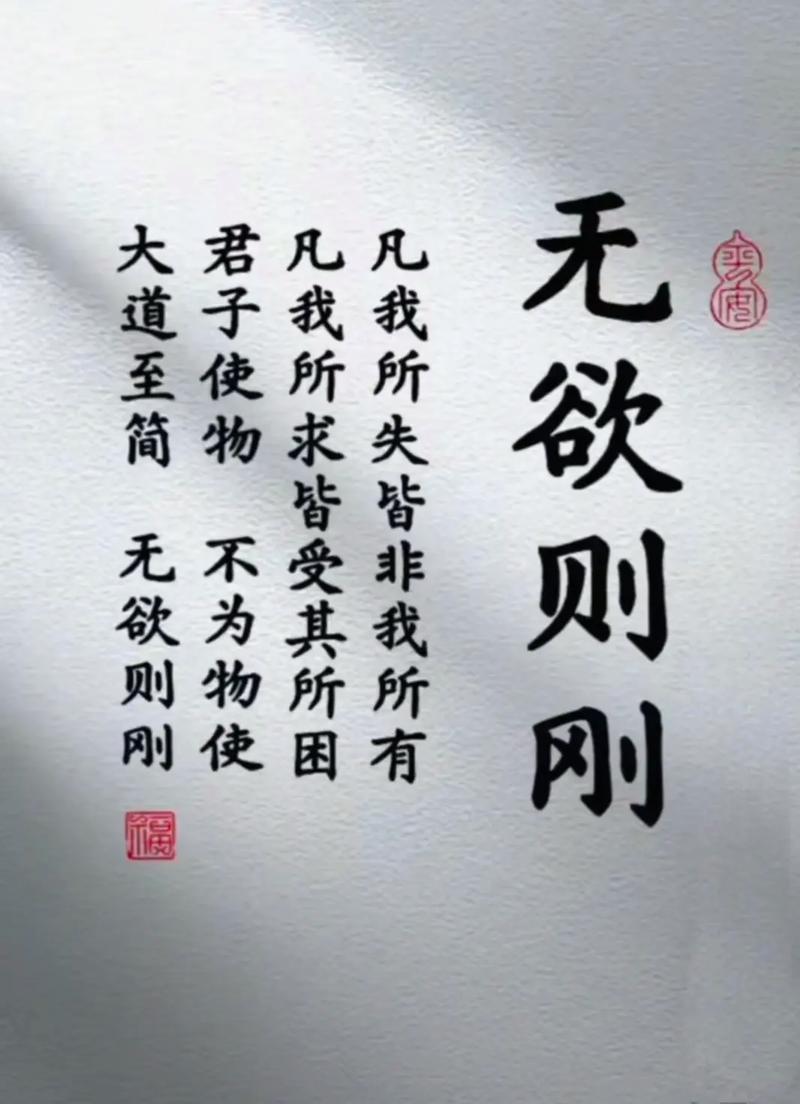 无欲则刚
凡我所失皆非我所有
凡我所求皆受其所困
君子使物 不为物使
大道至简 无欲则刚
福